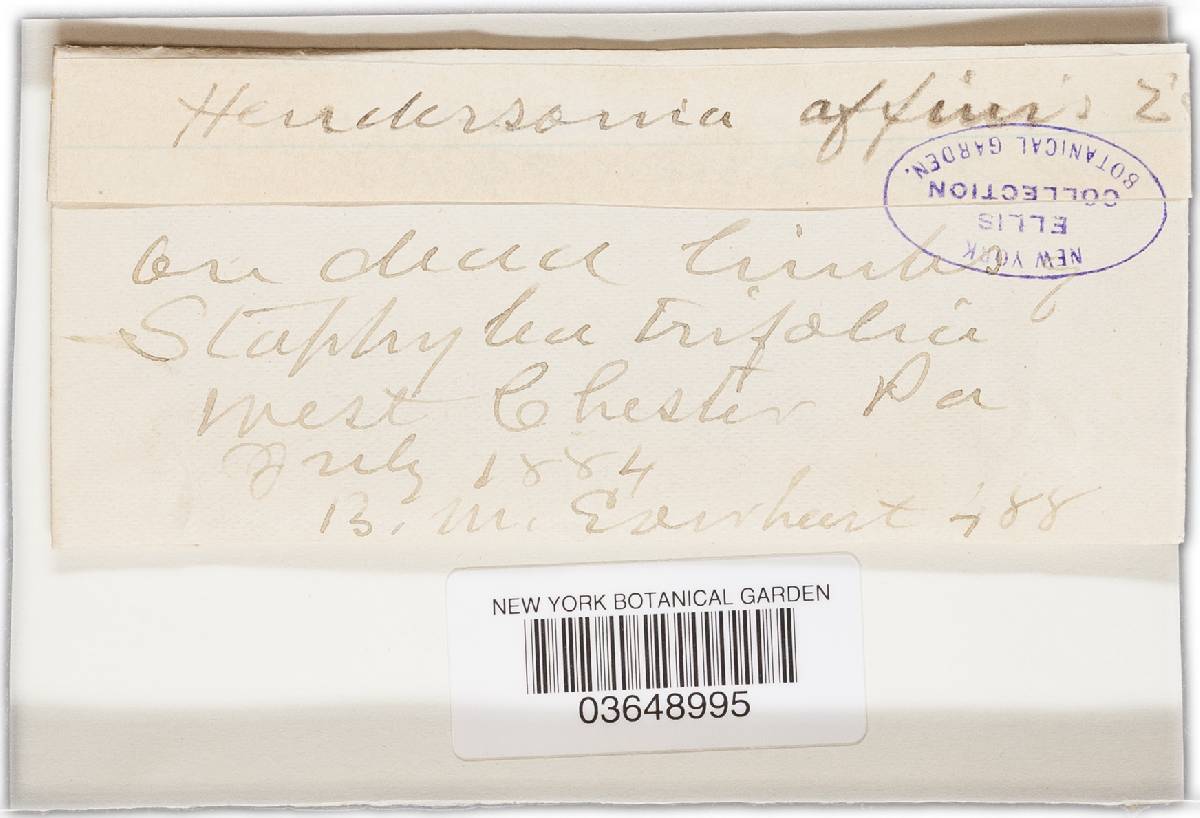 Hendersonia affinis
NEW YORK
BOTANICAL GARDEN.
ELLIS
COLLECTION
on dead limbs
Staphylea trifolia
West Chester Pa
July 1884
B. M. Everhart 488
NEW YORK BOTANICAL GARDEN
03648995